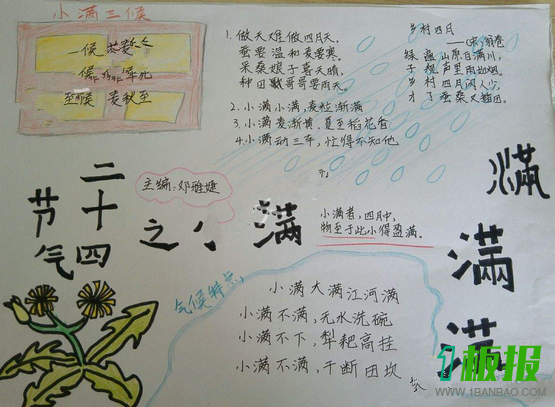 小满三候
一候 苦麦
至候 麦秋至
1.做天难做四月天,
蚕要温和麦要寒。
采桑娘子喜天晴,
种田歌哥要雨天。
2.小满小满,麦粒渐满
3.小满麦渐黄,夏至稻花香
4.小满动三车,忙得不知他
乡村四月
(宋)翁卷
绿遍山原白满川,
子规声里雨如烟。
乡村四月闲人少,
才了蚕桑又插田。
二十四
节气
之小满
主编:邓雅婕
小满者,四月中,
物至于此小得盈满。
满
满
满
气候特点:
小满大满江河满
小满不满,无水洗碗
小满不下,犁耙高挂
小满不满,干断田坎
1板报
WWW.1BANBAO.COM